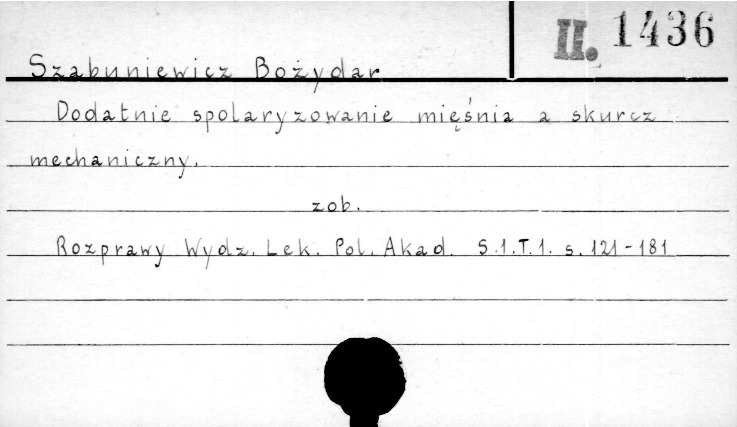 II. 1436
Szabuniewicz Bożydar
Dodatnie spolaryzowanie mięśnia a skurcz
mechaniczny.
zob.
Rozprawy Wydz. Lek. Pol. Akad. S.1.T.1. s. 121-181